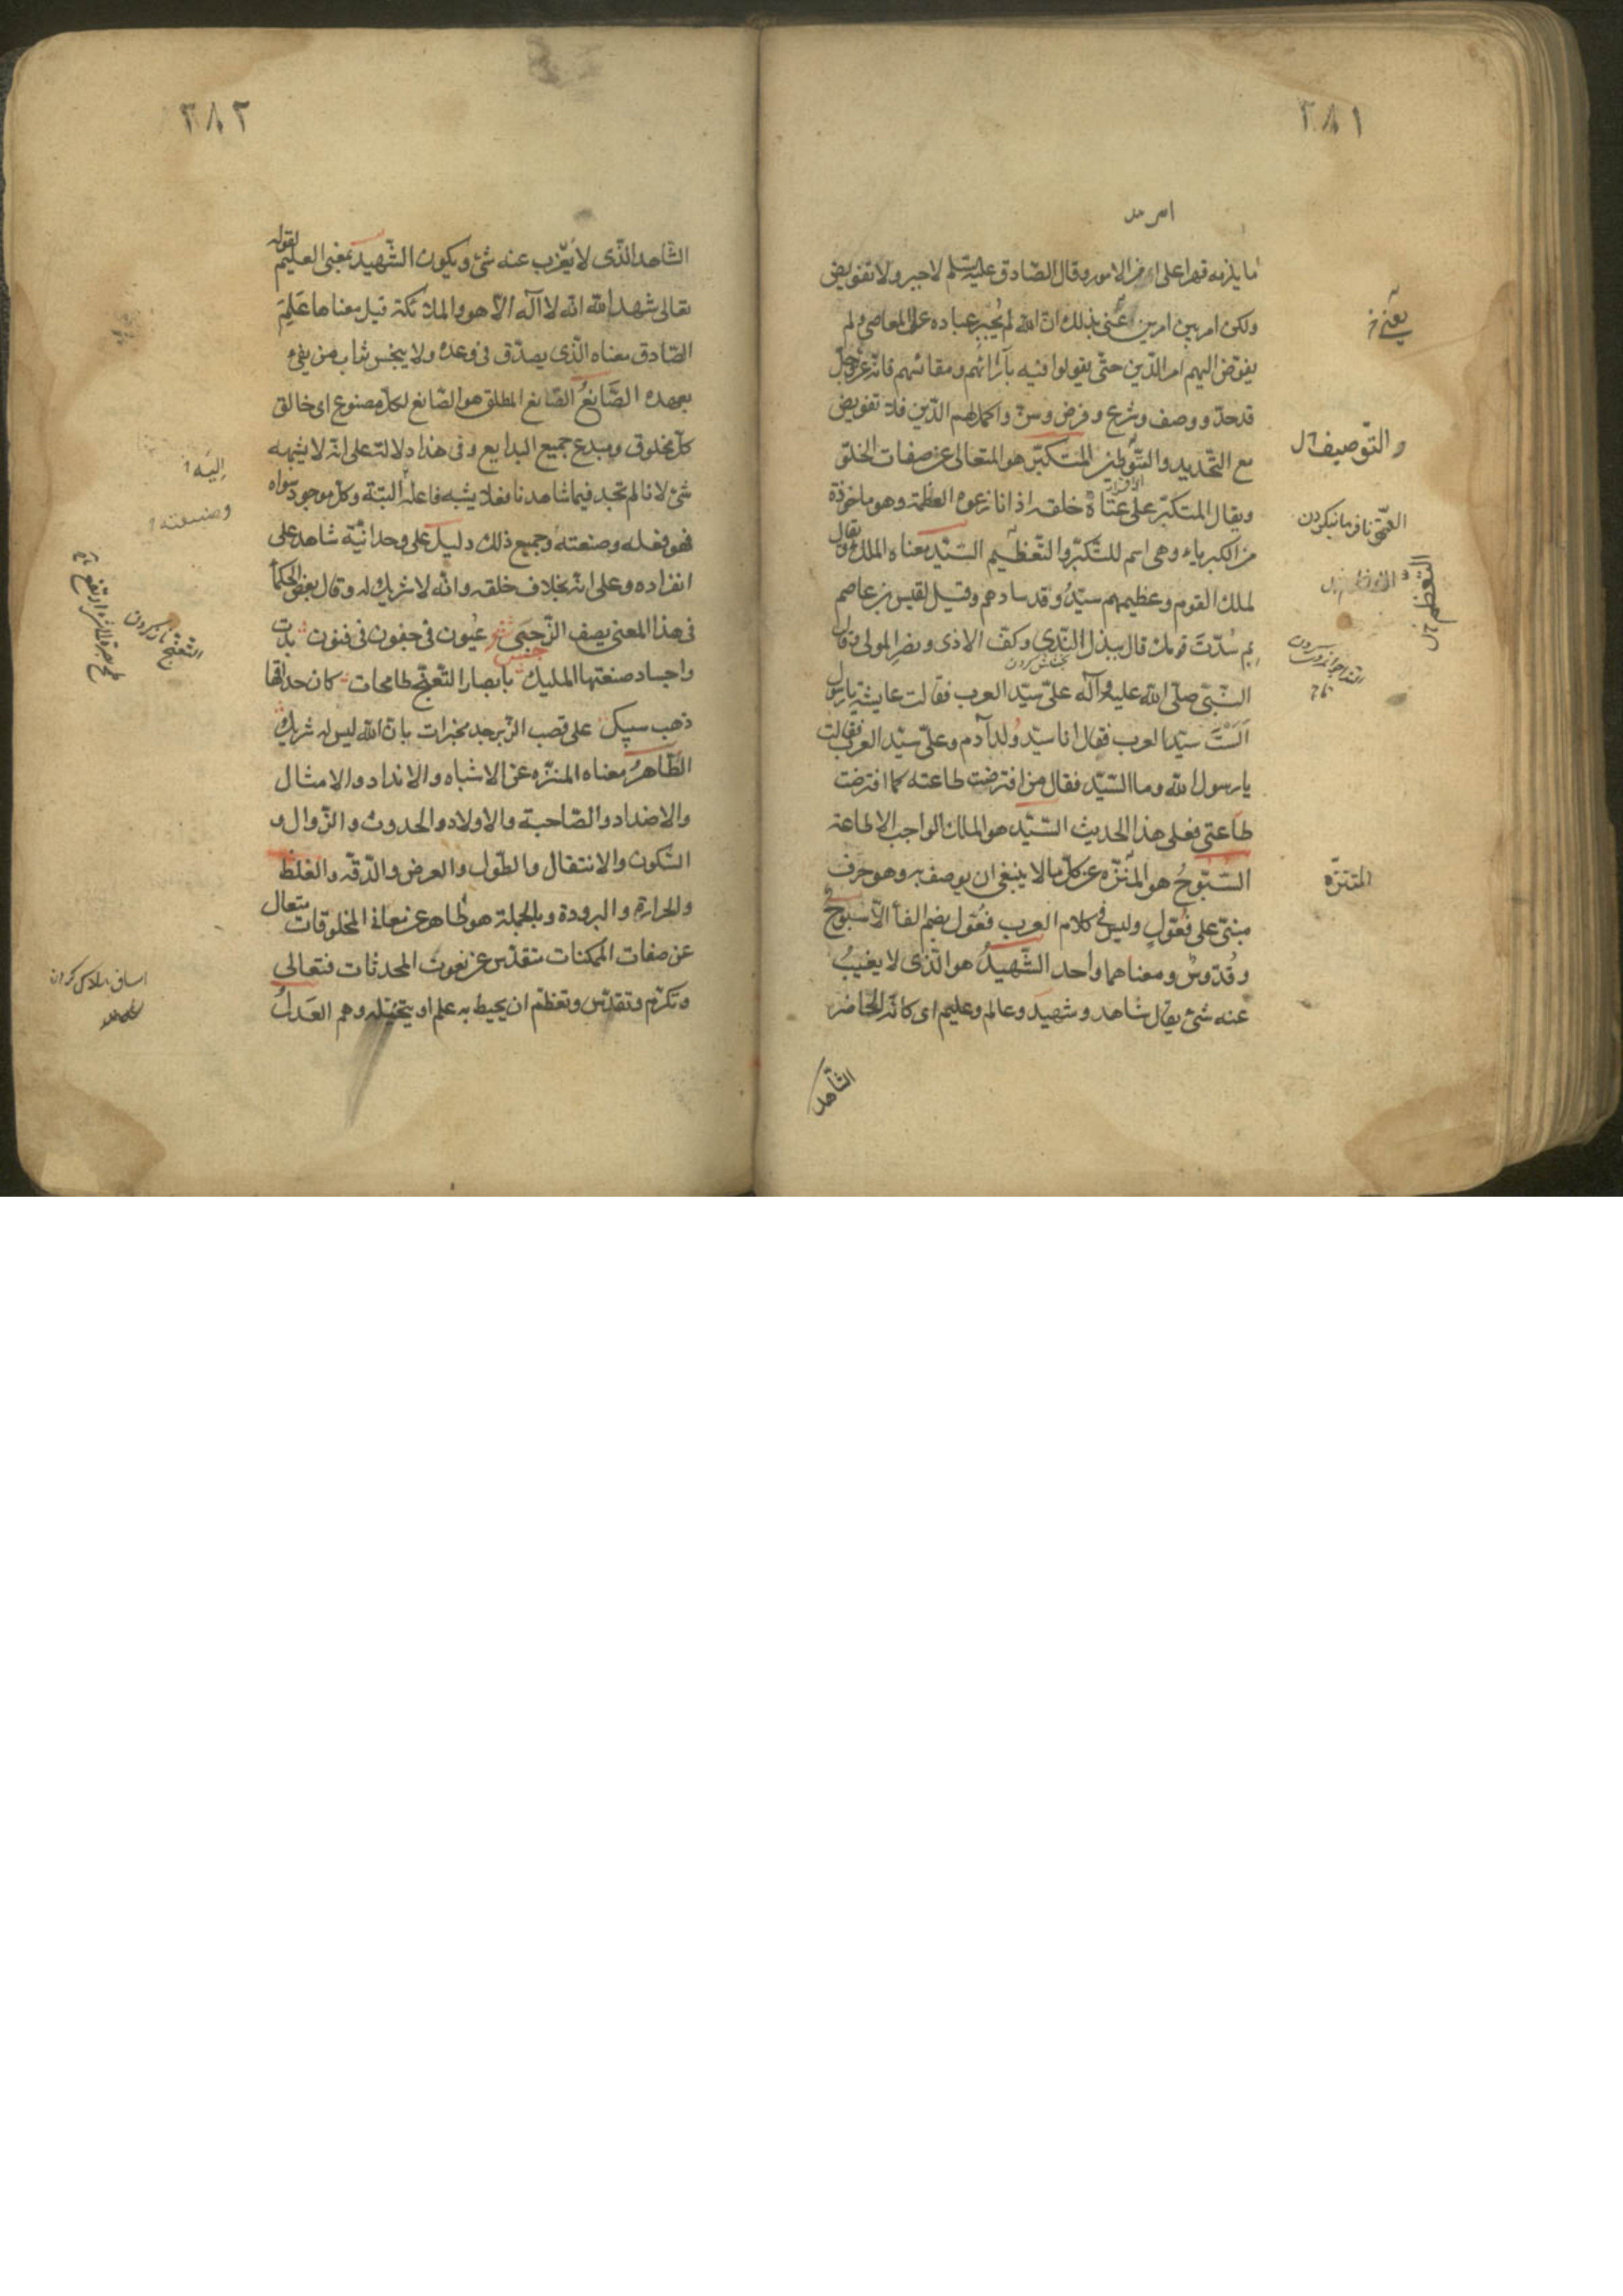 ٢٨١
ما يلزمه قهرا على امر من الامور وقال الصّادق عليه السّلم لا جبر ولا تفويض
ولكن امر بين امرين عنى بذلك انّ الله لم يُجبر عباده على المعاصى ولم
يفوّض اليهم امر الدّين حتّى يقولوا فيه بآرائهم ومقائسهم فانّه عزّ وجلّ
قد حدّ ووصف وشرع وفرض وسنّ واكمل لهم الدّين فلا تفويض
مع التّحديد والتّوظيف المتكبّر هو المتعالى عن صفات الخلق
ويقال المتكبّر على عتاة خلقه اذا نازعوه العظمة وهو ماخوذة
من الكبرياء وهى اسم للتّكبّر والتّعظيم السّيّد معناه الملك ويقال
لملك القوم وعظيمهم سيّد وقد سادهم وقيل لقيس بن عاصم
بم سُدّتَ قومك قال ببذل النّدى وكفّ الاذى ونصر المولى وقال
النّبىّ صلّى الله عليه وآله علىّ سيّد العرب فقالت عايشة يا رسول
اَلَسْتَ سيّد العرب فقال انا سيّد وُلد آدم وعلىّ سيّد العرب فقالت
يا رسول الله وما السّيّد فقال من افترضت طاعته كما افترضت
طاعتى فعلى هذا الحديث السّيّد هو الملك الواجب الاطاعة
السّبّوحُ هو المنزّه عن كلّ ما لا ينبغى ان يوصف به وهو حرف
مبنىّ على فُعّولٍ وليس فى كلام العرب فُعّول بضم الفا الاّ سبّوحٌ
وقُدّوسٌ ومعناهما واحد الشّهيدُ هو الّذى لا يغيبُ
عنه شئ يقال شاهد وشهيد وعالم وعليم اى كانّه الحاضر
الشّاهد
والتّوصيف ل
التعظم ل
المتنزّه
٢٨٢
الشّاهد الّذى لا يعزب عنه شئ ويكون الشّهيد بمعنى العليم لقوله
تعالى شهد الله انّه لا آله الاّ هو والملائكة قيل معناها عَلِمَ
الصّادق معناه الّذى يصدّق فى وعده ولا يبخس ثواب من يفى
بعهده الصّانعُ الصّانع المطلق هو الصّانع لكلّ مصنوع اى خالق
كلّ مخلوق ومبدع جميع البدايع وفى هذا دلالة على انّه لا يشبهه
شئ لانا لم نجد فيما شاهدنا فعلا يشبه فاعله البتّة وكلّ موجود سواه
فهو فعله وصنعته وجميع ذلك دليل على وحدانيّة شاهد على
انفراده وعلى انّه بخلاف خلقه وانّه لا شريك له وقال بعض الحكمآ
فى هذا المعنى يصف النّرجس شعر عُيون فى جفون فى فنون بدت
واجساد صنعتها المليك بابصار التّغنّج طامحات كان حداقها
ذهب سبيك على قصب الزّبرجد مخبرات بانّ الله ليس له شريك
الطّاهرُ معناه المنزّه عن الاشباه والانداد والامثال
والاضداد والصّاحبة والاولاد والحدوث والزّوال و
السّكون والانتقال والطّول والعرض والدّقّة والغلظ
والحرارة والبرودة وبالجملة هو طاهر عن معانى المخلوقات متعال
عن صفات الممكنات متقدّس عن نعوت المحدثات فتعالى
وتكرّم وتقدّس وتعظّم ان يحيط به علم او يتخيّله وهم العَدلُ